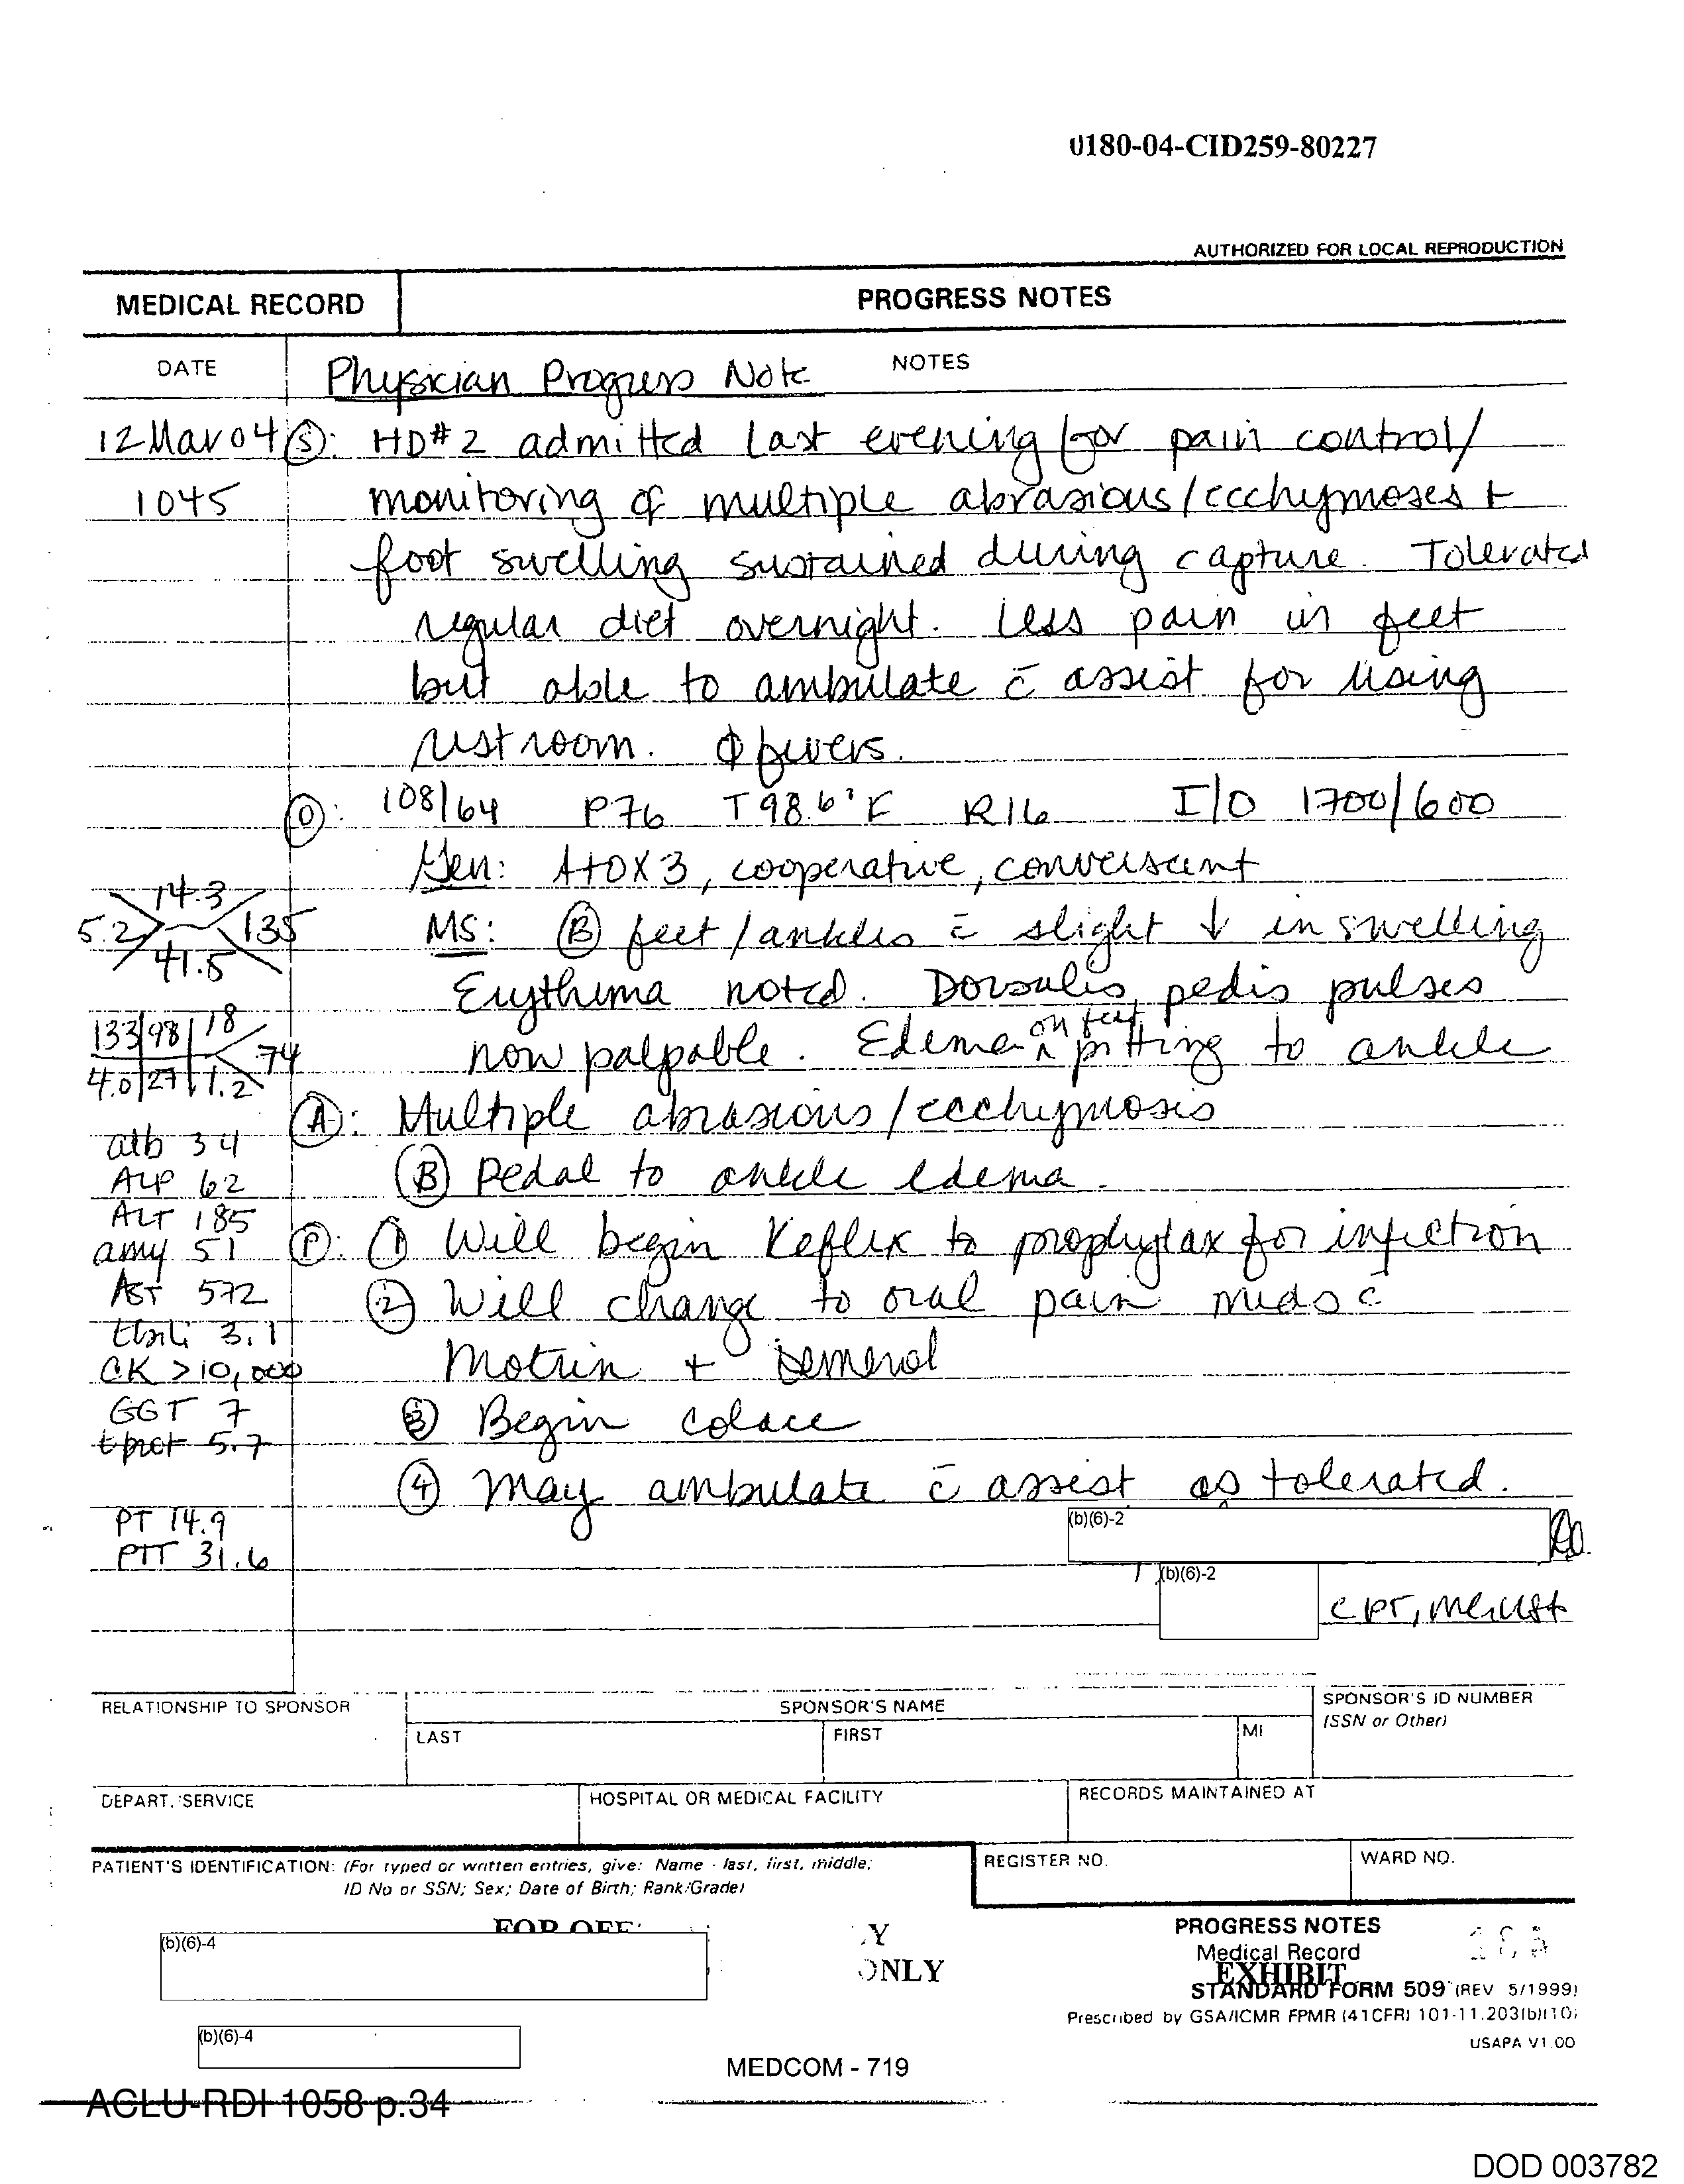 0180-04-CID259-80227
AUTHORIZED FOR LOCAL REPRODUCTION
MEDICAL RECORD
PROGRESS NOTES
DATE
NOTES
Physician Progress Note
12 Mar 04 Ⓢ: HD#2 admitted last evening for pain control/
1045 monitoring of multiple abrasions/ecchymoses +
foot swelling sustained during capture. Tolerated
regular diet overnight. Less pain in feet
but able to ambulate c̄ assist for using
restroom. ϕ fevers.
Ⓞ: 108/64 P76 T 98.6°F R16 I/O 1700/600
Gen: A+OX3, cooperative, conversant
14.3
5.2 135
41.5
MS: Ⓑ feet/ankles c̄ slight ↓ in swelling
Erythema noted. Dorsalis pedis pulses
now palpable. Edema on feet pitting to ankle
133 98 18
74
4.0 27 1.2
Ⓐ: Multiple abrasions/ecchymosis
Ⓑ Pedal to ankle edema.
alb 3.4
ALP 62
ALT 185
amy 51
AST 572
tbili 3.1
CK >10,000
GGT 7
tprot 5.7
PT 14.9
PTT 31.6
Ⓟ: ① Will begin Keflex to prophylax for infection
② Will change to oral pain meds c̄
Motrin + Demerol
③ Begin colace
④ May ambulate c̄ assist as tolerated.
(b)(6)-2
(b)(6)-2
CPT,
RELATIONSHIP TO SPONSOR
SPONSOR'S NAME
LAST
FIRST
MI
SPONSOR'S ID NUMBER
(SSN or Other)
DEPART./SERVICE
HOSPITAL OR MEDICAL FACILITY
RECORDS MAINTAINED AT
PATIENT'S IDENTIFICATION: (For typed or written entries, give: Name - last, first, middle;
ID No or SSN; Sex; Date of Birth; Rank/Grade)
REGISTER NO.
WARD NO.
FOR OFF
Y
ONLY
(b)(6)-4
(b)(6)-4
PROGRESS NOTES
Medical Record
EXHIBIT
STANDARD FORM 509 (REV 5/1999)
Prescribed by GSA/ICMR FPMR (41CFR) 101-11.203(b)(10)
USAPA V1.00
MEDCOM - 719
ACLU-RDI 1058 p.34
DOD 003782